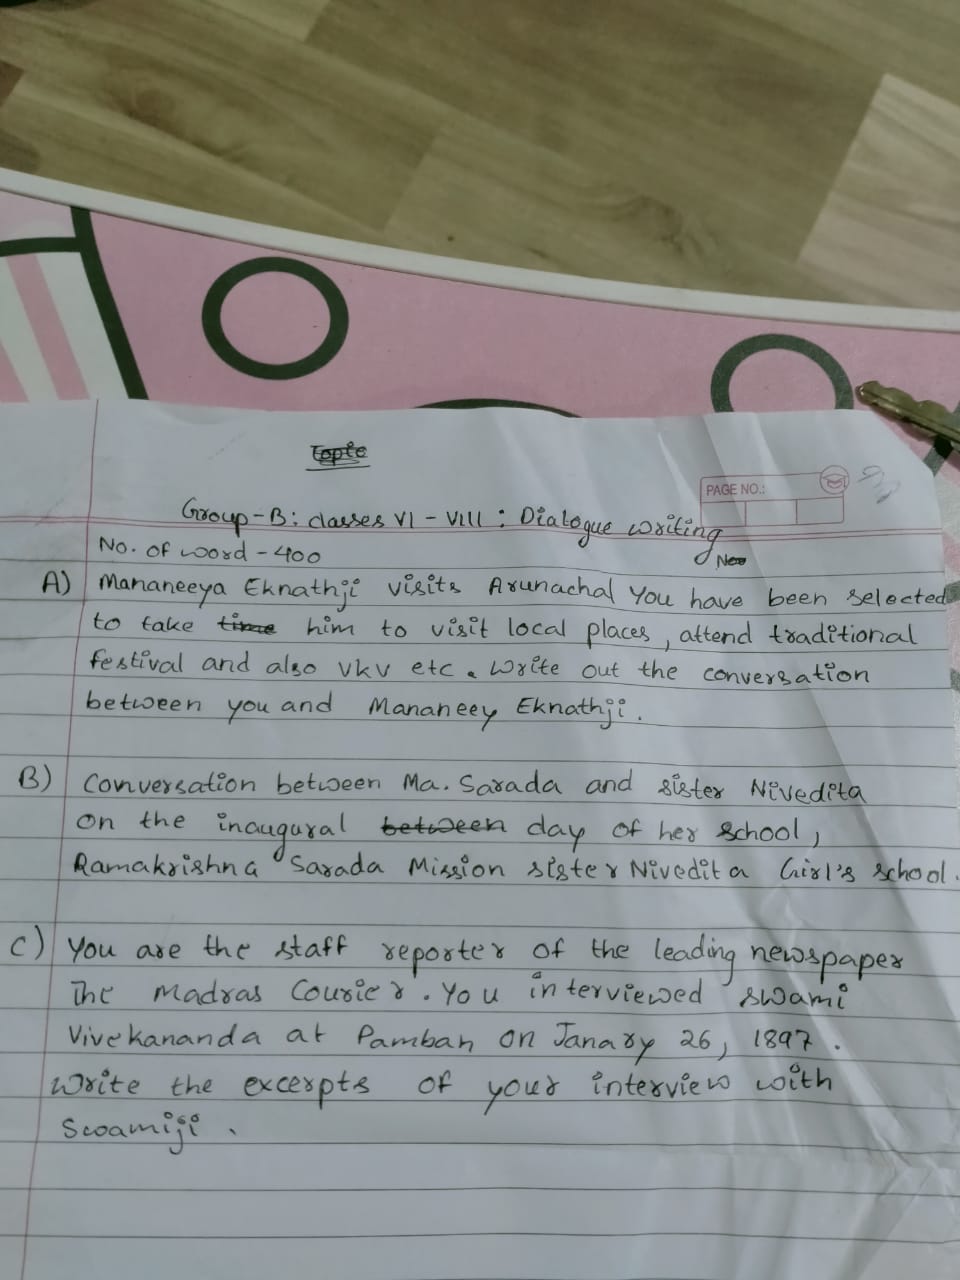 Topic
PAGE NO.:
Group-B: classes VI - VIII : Dialogue writing
No. of word - 400
A) Mananeeya Eknathji visits Arunachal you have been selected
to take time him to visit local places, attend traditional
festival and also VKV etc. Write out the conversation
between you and Mananeey Eknathji.
B) Conversation between Ma. Sarada and sister Nivedita
on the inaugural between day of her school,
Ramakrishna Sarada Mission sister Nivedita Girl's school.
C) You are the staff reporter of the leading newspaper
The Madras Courier. You interviewed swami
Vivekananda at Pamban on Janary 26, 1897.
Write the excerpts of your interview with
Swamiji.